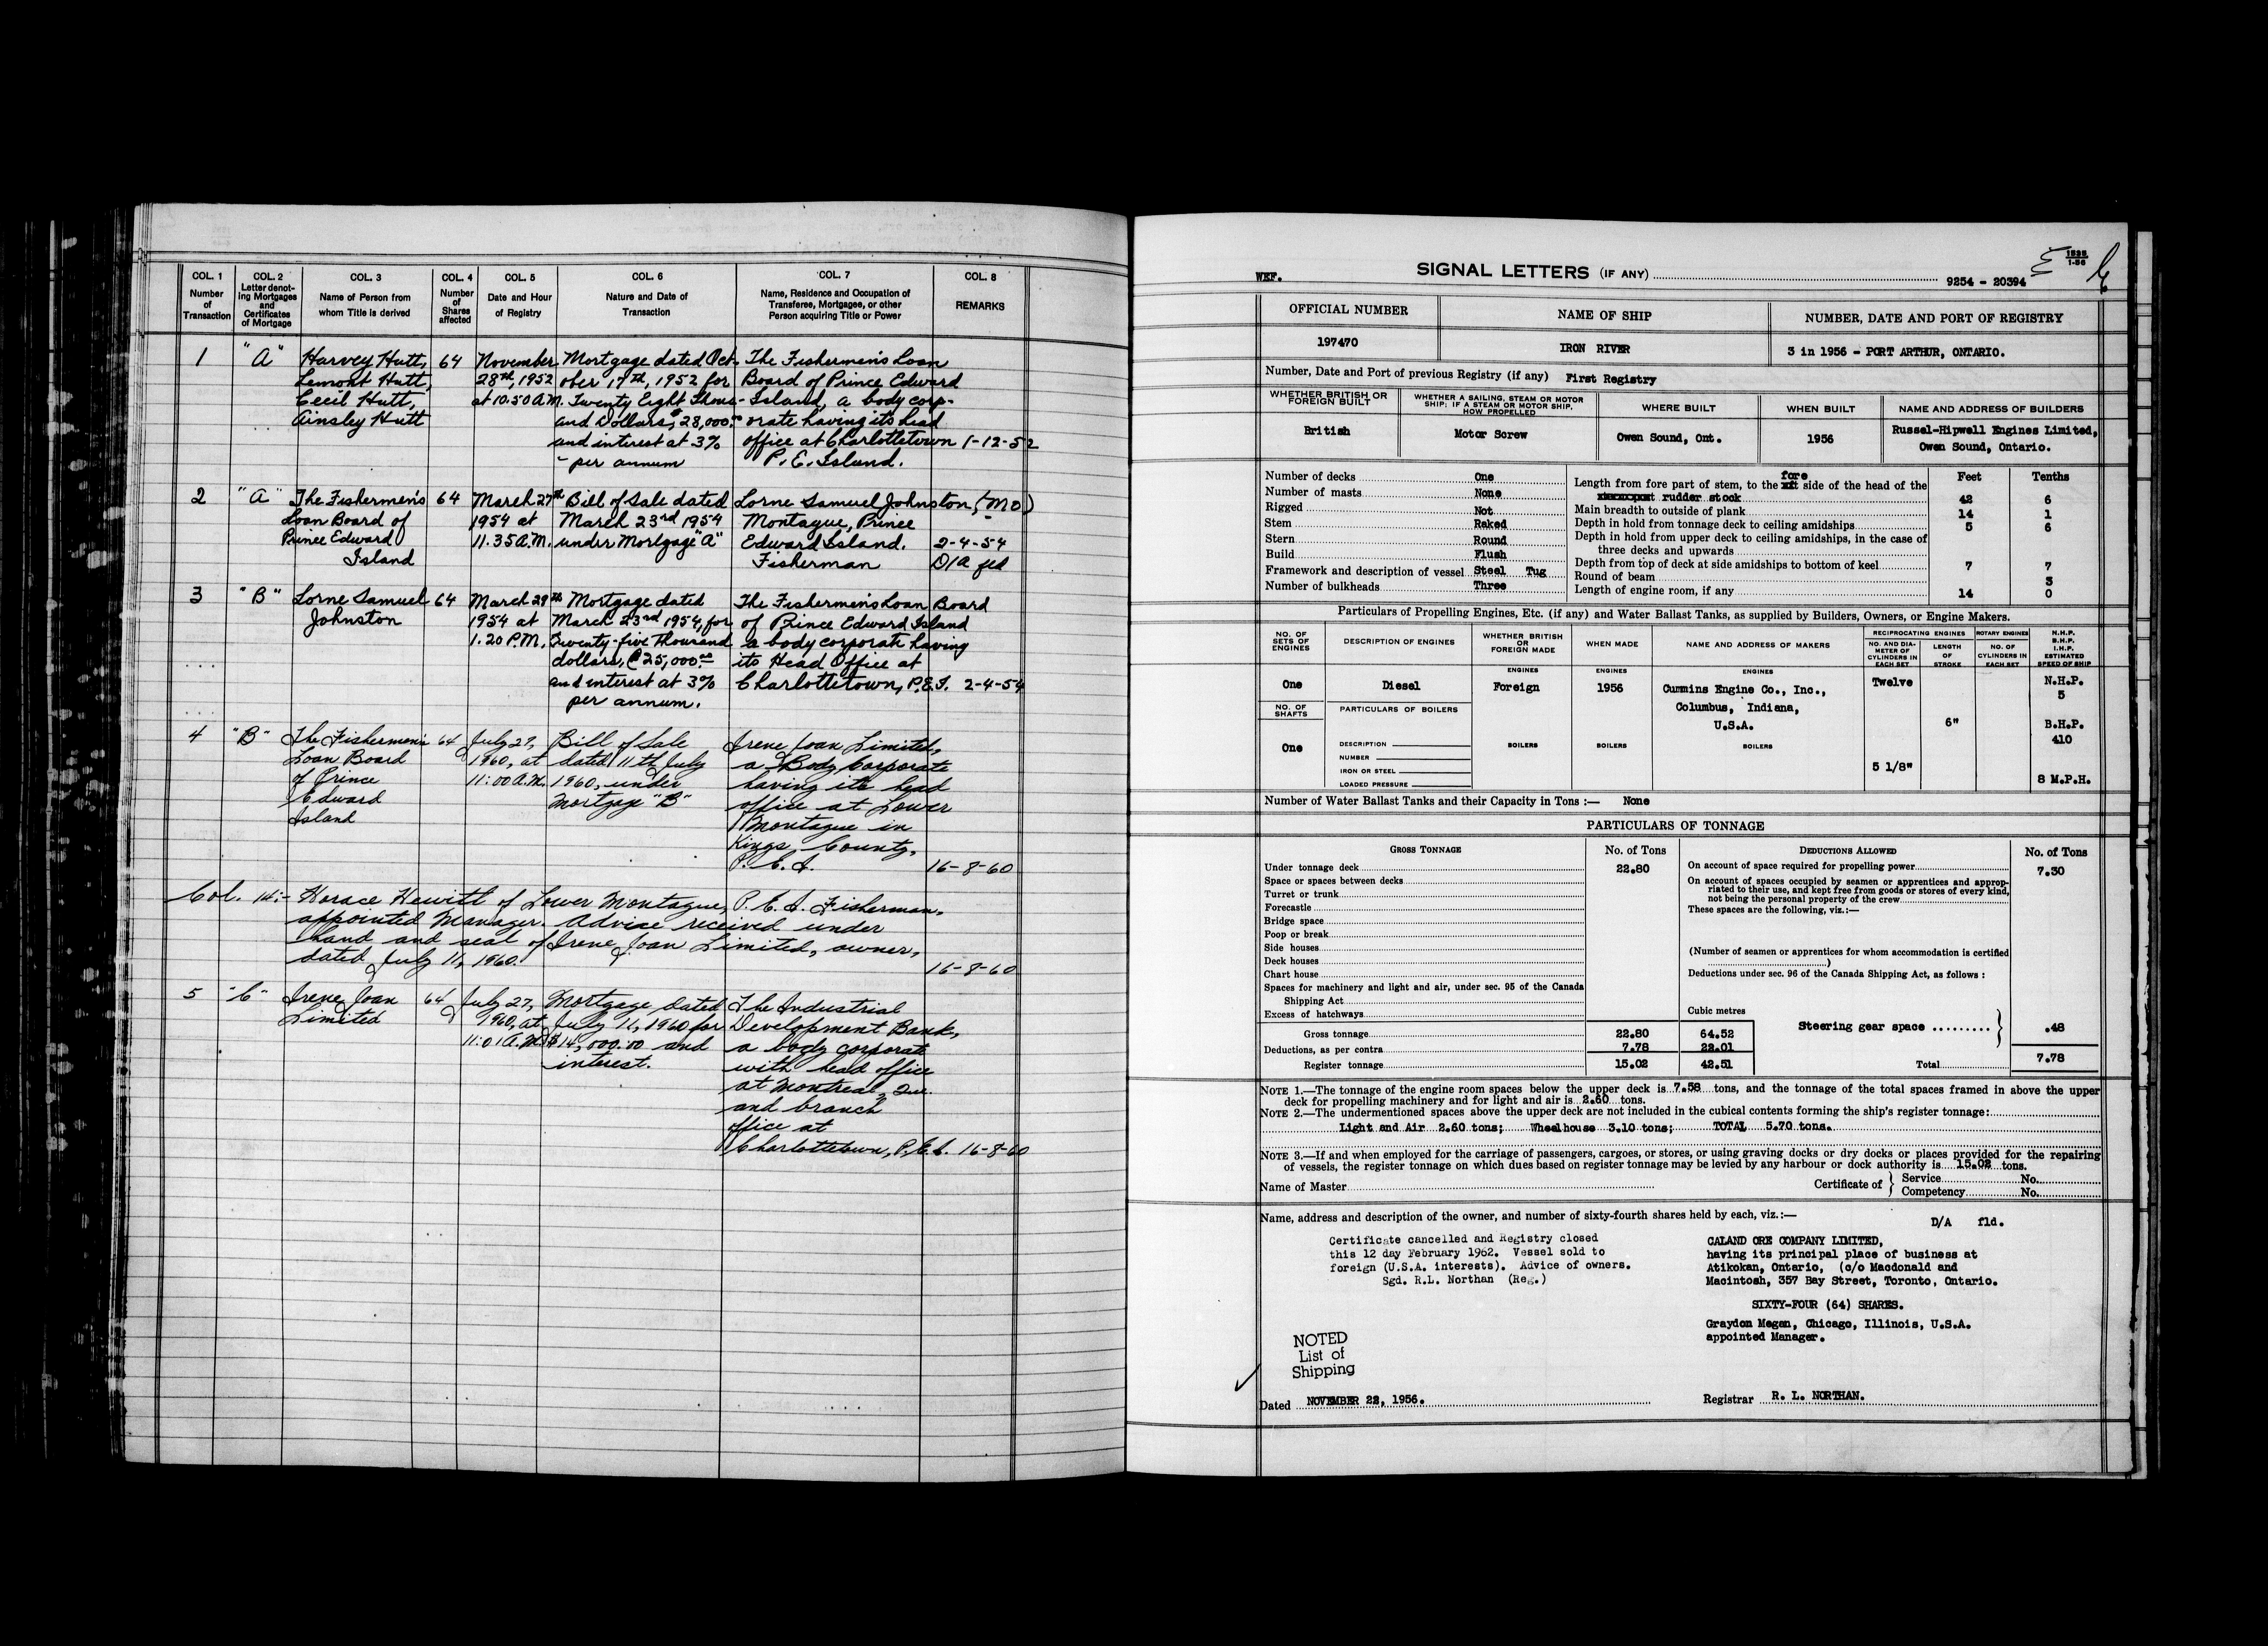 COL. 1 COL. 2 COL. 3 COL. 4 COL. 5 COL. 6 COL. 7 COL. 8
Number of Transaction
Letter denot-ing Mortgages and Certificates of Mortgage
Name of Person from whom Title is derived
Number of Shares affected
Date and Hour of Registry
Nature and Date of Transaction
Name, Residence and Occupation of Transferee, Mortgagee, or other Person acquiring Title or Power
REMARKS
1 "A" Harvey Hutt, 64 November Mortgage dated Oct- The Fishermen's Loan
Lemont Hutt, 28th, 1952 ober 17th, 1952 for Board of Prince Edward
Cecil Hutt, at 10.50 A.M. Twenty Eight Thous- Island, a body corp-
Ainsley Hutt and Dollars, $28,000.00 orate having its head
and interest at 3% office at Charlottetown 1-12-52
per annum P. E. Island.
2 "A" The Fishermen's 64 March 27th Bill of Sale dated Lorne Samuel Johnston, (MO)
Loan Board of 1954 at March 23rd 1954 Montague, Prince
Prince Edward 11.35 A.M. under Mortgage "A" Edward Island. 2-4-54
Island Fisherman D/A fld
3 "B" Lorne Samuel 64 March 29th Mortgage dated The Fishermen's Loan Board
Johnston 1954 at March 23rd 1954, for of Prince Edward Island
1.20 P.M. Twenty-five Thousand a body corporate having
dollars, $25,000.00 its Head Office at
and interest at 3% Charlottetown, P.E.I. 2-4-54
per annum.
4 "B" The Fishermen's 64 July 27, Bill of Sale Irene Joan Limited,
Loan Board 1960, at dated 11th July a Body Corporate
of Prince 11:00 A.M. 1960, under having its head
Edward Mortgage "B" office at Lower
Island Montague in
Kings County,
P. E. I. 16-8-60
Col. 14:- Horace Hewitt of Lower Montague, P. E. I. Fisherman,
appointed Manager. Advice received under
hand and seal of Irene Joan Limited, owner,
dated July 11, 1960.
16-8-60
5 "C" Irene Joan 64 July 27, Mortgage dated The Industrial
Limited 1960, at July 11, 1960 for Development Bank,
11:01 A.M. $14,000.00 and a body corporate
interest. with head office
at Montreal, Que.
and branch
office at
Charlottetown, P.E.I. 16-8-60
WEF. SIGNAL LETTERS (IF ANY) 9254 - 20394
1-56
OFFICIAL NUMBER NAME OF SHIP NUMBER, DATE AND PORT OF REGISTRY
197470 IRON RIVER 3 in 1956 - PORT ARTHUR, ONTARIO.
Number, Date and Port of previous Registry (if any) First Registry
WHETHER BRITISH OR FOREIGN BUILT
WHETHER A SAILING, STEAM OR MOTOR SHIP; IF A STEAM OR MOTOR SHIP, HOW PROPELLED
WHERE BUILT WHEN BUILT NAME AND ADDRESS OF BUILDERS
British Motor Screw Owen Sound, Ont. 1956 Russel-Hipwell Engines Limited,
Owen Sound, Ontario.
Number of decks One
Number of masts None
Rigged Not
Stem Raked
Stern Round
Build Flush
Framework and description of vessel Steel Tug
Number of bulkheads Three
Feet Tenths
fore
Length from fore part of stem, to the aft side of the head of the
rudder stock 42 6
Main breadth to outside of plank 14 1
Depth in hold from tonnage deck to ceiling amidships 5 6
Depth in hold from upper deck to ceiling amidships, in the case of
three decks and upwards
Depth from top of deck at side amidships to bottom of keel 7 7
Round of beam 3
Length of engine room, if any 14 0
Particulars of Propelling Engines, Etc. (if any) and Water Ballast Tanks, as supplied by Builders, Owners, or Engine Makers.
NO. OF SETS OF ENGINES
DESCRIPTION OF ENGINES
WHETHER BRITISH OR FOREIGN MADE
WHEN MADE
NAME AND ADDRESS OF MAKERS
RECIPROCATING ENGINES
NO. AND DIA-METER OF CYLINDERS IN EACH SET
LENGTH OF STROKE
ROTARY ENGINES
NO. OF CYLINDERS IN EACH SET
N.H.P.
B.H.P.
I.H.P.
ESTIMATED
SPEED OF SHIP
ENGINES ENGINES ENGINES
One Diesel Foreign 1956 Cummins Engine Co., Inc., Twelve N.H.P.
Columbus, Indiana, 5
U.S.A. 6" B.H.P.
410
NO. OF SHAFTS
PARTICULARS OF BOILERS
One
DESCRIPTION
NUMBER
IRON OR STEEL
LOADED PRESSURE
BOILERS BOILERS BOILERS
5 1/8" 8 M.P.H.
Number of Water Ballast Tanks and their Capacity in Tons :— None
PARTICULARS OF TONNAGE
GROSS TONNAGE No. of Tons DEDUCTIONS ALLOWED No. of Tons
Under tonnage deck 22.80
Space or spaces between decks
Turret or trunk
Forecastle
Bridge space
Poop or break
Side houses
Deck houses
Chart house
Spaces for machinery and light and air, under sec. 95 of the Canada
Shipping Act
Excess of hatchways
Cubic metres
Gross tonnage 22.80 64.52
Deductions, as per contra 7.78 22.01
Register tonnage 15.02 42.51
On account of space required for propelling power 7.30
On account of spaces occupied by seamen or apprentices and approp-
riated to their use, and kept free from goods or stores of every kind,
not being the personal property of the crew
These spaces are the following, viz.:—
(Number of seamen or apprentices for whom accommodation is certified
)
Deductions under sec. 96 of the Canada Shipping Act, as follows :
Steering gear space .48
Total 7.78
NOTE 1.—The tonnage of the engine room spaces below the upper deck is 7.58 tons, and the tonnage of the total spaces framed in above the upper
deck for propelling machinery and for light and air is 2.60 tons.
NOTE 2.—The undermentioned spaces above the upper deck are not included in the cubical contents forming the ship's register tonnage:
Light and Air 2.60 tons; Wheelhouse 3.10 tons; TOTAL 5.70 tons.
NOTE 3.—If and when employed for the carriage of passengers, cargoes, or stores, or using graving docks or dry docks or places provided for the repairing
of vessels, the register tonnage on which dues based on register tonnage may be levied by any harbour or dock authority is 15.02 tons.
Name of Master Certificate of Service No.
Competency No.
Name, address and description of the owner, and number of sixty-fourth shares held by each, viz.:—
D/A fld.
Certificate cancelled and Registry closed
this 12 day February 1962. Vessel sold to
foreign (U.S.A. interests). Advice of owners.
Sgd. R.L. Northan (Reg.)
CALAND ORE COMPANY LIMITED,
having its principal place of business at
Atikokan, Ontario, (c/o Macdonald and
Macintosh, 357 Bay Street, Toronto, Ontario.
SIXTY-FOUR (64) SHARES.
Graydon Megan, Chicago, Illinois, U.S.A.
appointed Manager.
NOTED
List of
Shipping
Dated NOVEMBER 22, 1956. Registrar R. L. NORTHAN.